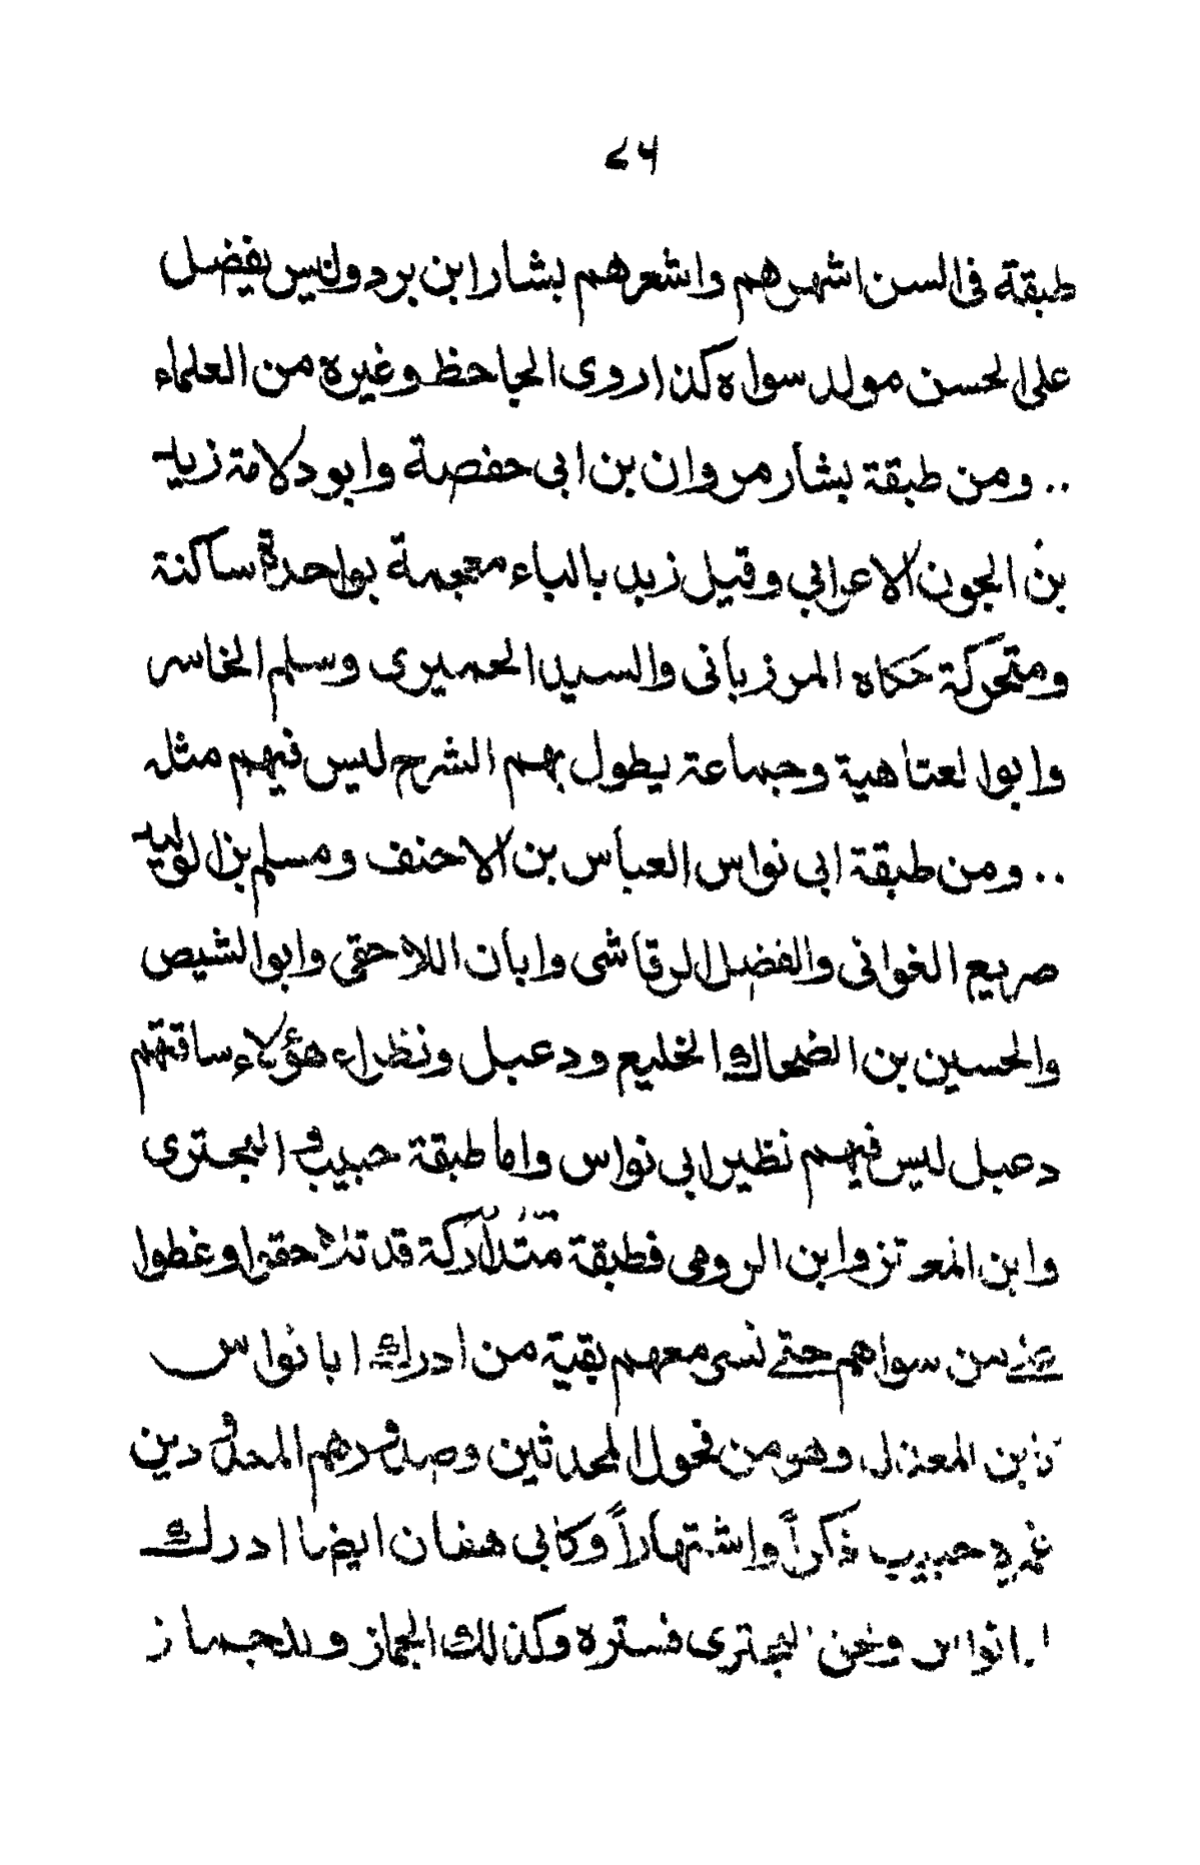 ٤٦
طبقة فى السن اشهرهم واشعرهم بشار ابن برد وليس يفضل
على الحسن مولد سواه كذا روى الجاحظ وغيره من العلماء
.. ومن طبقة بشار مروان بن ابى حفصة وابو دلامة زيد
بن الجون الاعرابي وقيل زبد بالباء معجمة بواحدة ساكنة
ومتحركة حكاه المرزبانى والسيد الحميرى وسلم الخاسر
وابوا لعتاهية وجماعة يطول بهم الشرح ليس فيهم مثله
.. ومن طبقة ابى نواس العباس بن الاحنف ومسلم بن الوليد
صريع الغوانى والفضل الرقاشى وابان اللاحقى وابوا لشيص
والحسين بن الضحاك الخليع ودعبل ونظراء هؤلاء ساقتهم
دعبل ليس فيهم نظير ابى نواس واما طبقة حبيب و البحترى
وابن المعتز وابن الرومى فطبقة متداركة قد تلاحقوا وغطوا
على من سواهم حتى نسى معهم بقية من ادرك ابا نواس
بن المعذل وهو من فحول المحدثين وصدورهم المعدودين
غمره حبيب ذكراً واشتهاراً وكابى هفان ايضا ادرك
ابا نواس ولحق البحترى فستره وكذلك الجماز وللجماز